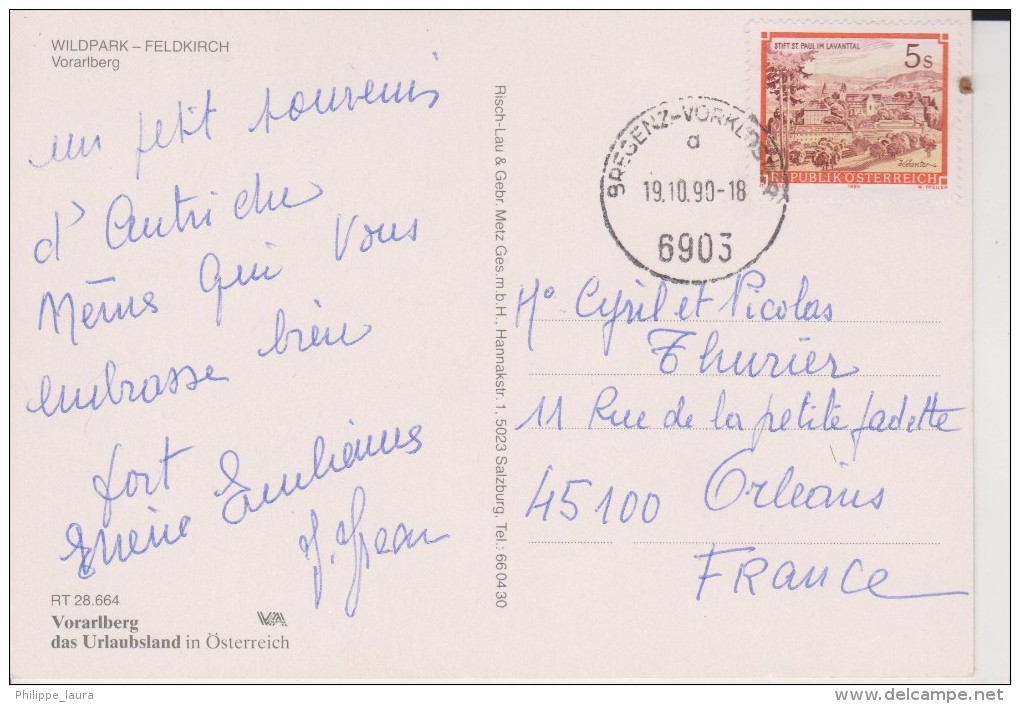 WILDPARK – FELDKIRCH
Vorarlberg
un petit souvenir
d'Autriche
Mémé qui vous
embrasse bien
fort
RT 28.664
Vorarlberg
das Urlaubsland in Österreich
Risch-Lau & Gebr. Metz Ges.m.b.H., Hannakstr. 1, 5023 Salzburg, Tel.: 66 04 30
STIFT ST. PAUL IM LAVANTTAL
5 S
REPUBLIK ÖSTERREICH
BREGENZ-VORKLOSTER
a
19.10.90-18
6903
Mo Cyril et Nicolas
Thurier
11 Rue de la petite fadette
45100 Orléans
FRANCE
Philippe_laura
www.delcampe.net